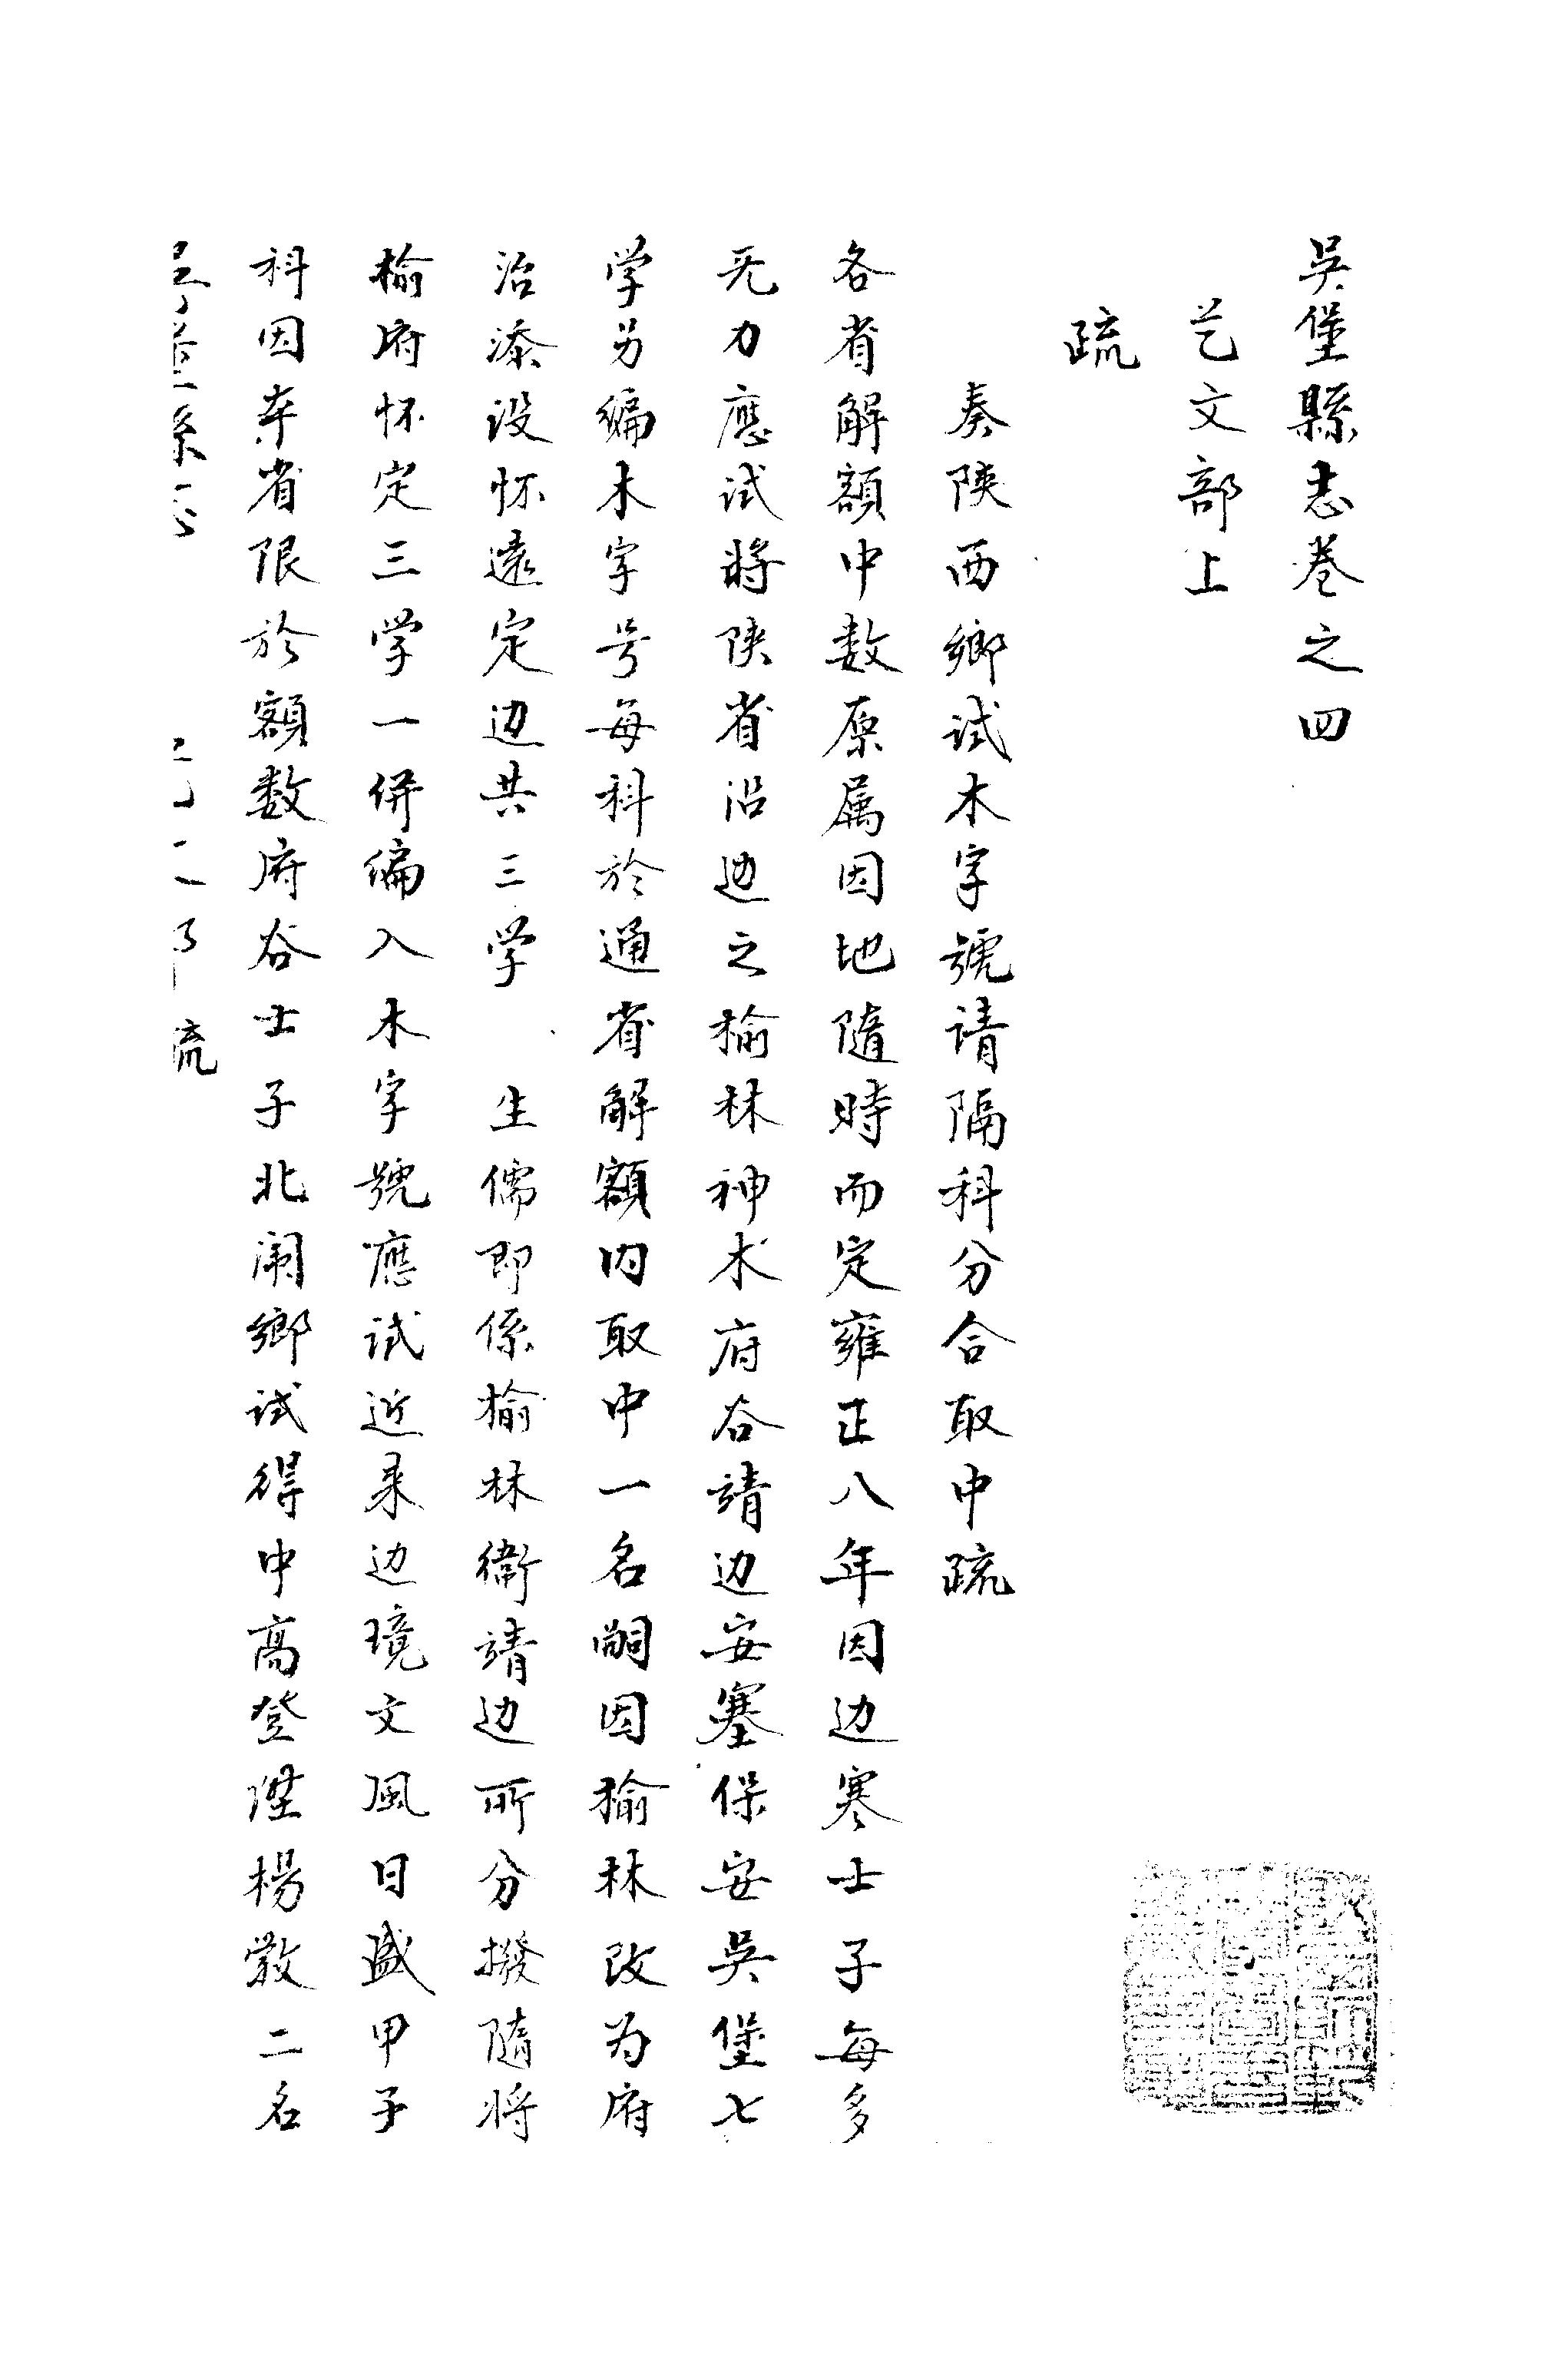 吳堡縣志卷之四
艺文部上
疏
奏陕西鄉试木字號请隔科分合取中疏
各省解額中数原属因地隨時而定雍正八年因边寒士子每多
无力應试將陕省沿边之榆林神木府谷靖边安塞保安吳堡七
学另编木字号每科於通省解額内取中一名嗣因榆林改为府
治添设怀遠定边共三学 生儒即係榆林衞靖边所分撥隨将
榆府怀定三学一併编入木字號應试近来边境文風日盛甲子
科因本省限於額数府谷士子北闱鄉试得中高登陞楊敩二名